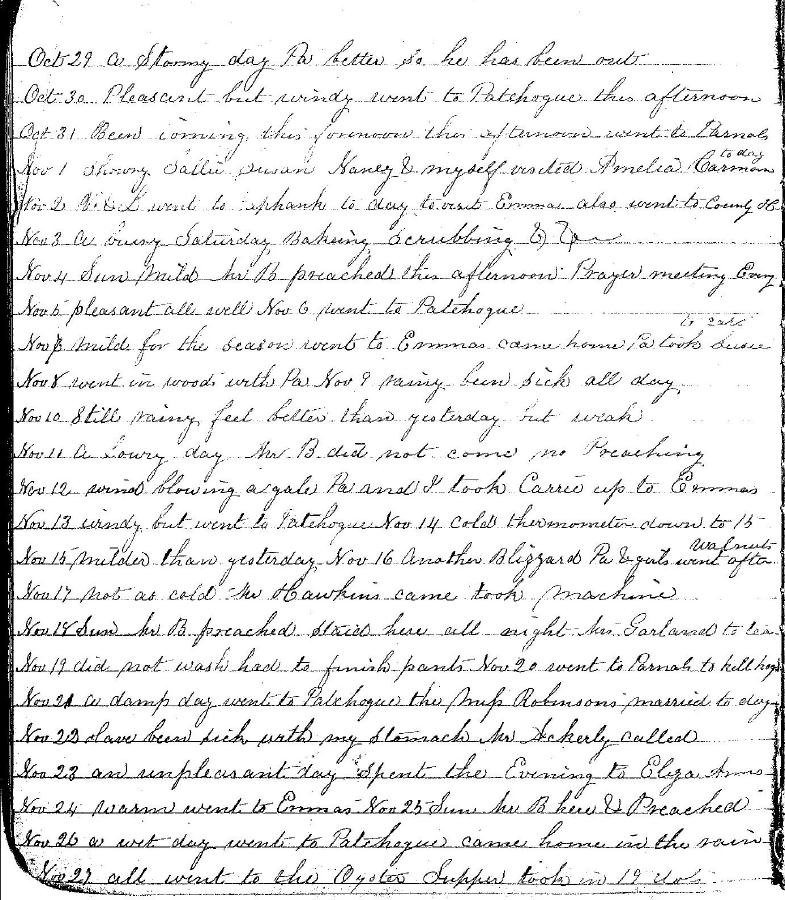 Oct 29 a Stormy day Pa better so he has been out
Oct 30 Pleasant but windy went to Patchogue this afternoon
Oct 31 Been ironing this forenoon this afternoon went to Parnals
to day
Nov 1 Showry Sallie Susan Nancy & myself visited Amelia Carman
Nov 2 went to aphank to day to visit Emmas also went to County
Nov 3 a busy Saturday Baking Scrubbing &
Nov 4 Sun Mild Mr B preached this afternoon Prayer meeting Evng
Nov 5 pleasant all well Nov 6 went to Patchogue
to cars
Nov mild for the season went to Emmas came home Pa took Susie
Nov 8 went in woods with Pa Nov 9 rainy been sick all day
Nov 10 Still rainy feel better than yesterday but weak
Nov 11 a Lowry day Mr B did not come no Preaching
Nov 12 wind blowing a gale Pa and I took Carrie up to Emmas
Nov 13 windy but went to Patchogue Nov 14 cold thermometer down to 15
walnuts
Nov 15 milder than yesterday Nov 16 Another Blizzard Pa & girls went after
Nov 17 not as cold Mr Hawkins came took machine
Nov 18 Sun Mr B preached staid here all night Mrs Garland to tea
Nov 19 did not wash had to finish pants Nov 20 went to Parnals to kill hogs
Nov 21 a damp day went to Patchogue the Miss Robinsons married to day
Nov 22 have been sick with my stomach Mr Ackerly called
Nov 23 an unpleasant day Spent the Evening to Eliza Anns
Nov 24 warm went to Emmas Nov 25 Sun Mr B here & Preached
Nov 26 a wet day went to Patchogue came home in the rain
Nov 27 all went to the Oyster Supper took in 19 dols